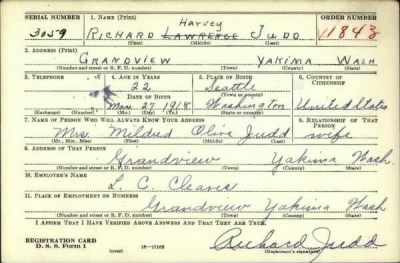 SERIAL NUMBER 1. NAME (Print) ORDER NUMBER
Harvey
3059 RICHARD LAWRENCE JUDD 11843
(First) (Middle) (Last)
2. ADDRESS (Print)
GRANDVIEW YAKIMA WASH.
(Number and street or R. F. D. number) (Town) (County) (State)
3. TELEPHONE 4. AGE IN YEARS 5. PLACE OF BIRTH 6. COUNTRY OF CITIZENSHIP
22 Seattle
DATE OF BIRTH (Town or county)
Mar. 27 1918 Washington United States
(Mo.) (Day) (Yr.) (State or country)
7. NAME OF PERSON WHO WILL ALWAYS KNOW YOUR ADDRESS 8. RELATIONSHIP OF THAT PERSON
Mrs. Mildred Olive Judd wife
(Mr., Mrs., Miss) (First) (Middle) (Last)
9. ADDRESS OF THAT PERSON
Grandview Yakima Wash.
(Number and street or R. F. D. number) (Town) (County) (State)
10. EMPLOYER'S NAME
L. C.
11. PLACE OF EMPLOYMENT OR BUSINESS
Grandview Yakima Wash
(Number and street or R. F. D. number) (Town) (County) (State)
I AFFIRM THAT I HAVE VERIFIED ABOVE ANSWERS AND THAT THEY ARE TRUE.
REGISTRATION CARD
D. S. S. Form 1 (over) 16—17105 Richard Judd
(Registrant's signature)